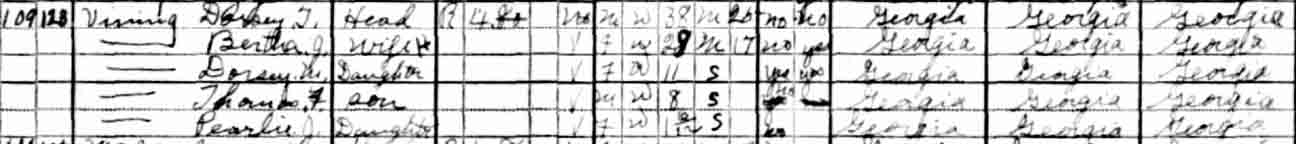 109 123 Vining Dorsey T. Head R 4.00 No M W 38 M 26 no no Georgia Georgia Georgia
Bertha J. Wife H V F W 28 M 17 no yes Georgia Georgia Georgia
Dorsey M. Daughter V F W 11 S yes yes Georgia Georgia Georgia
Thomas F son V M W 8 S Georgia Georgia Georgia
Pearlie J. Daughter V F W S no Georgia Georgia Georgia